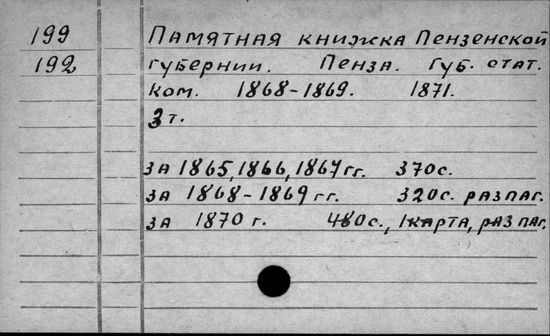 199 Памятная книжка Пензенской
192 губернии. Пенза. Губ. стат.
ком. 1868-1869. 1871.
3 т.
за 1865, 1866, 1867 гг. 370с.
за 1868-1869 гг. 320с. разпаг.
за 1870 г. 480с., 1карта, разпаг.